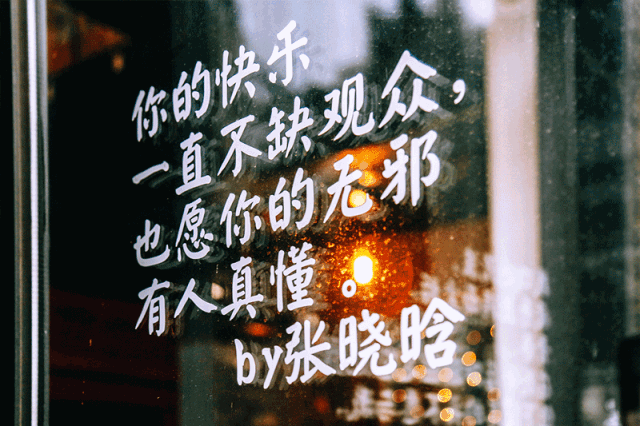 你的快乐
一直不缺观众，
也愿你的无邪
有人真懂。
by张晓晗